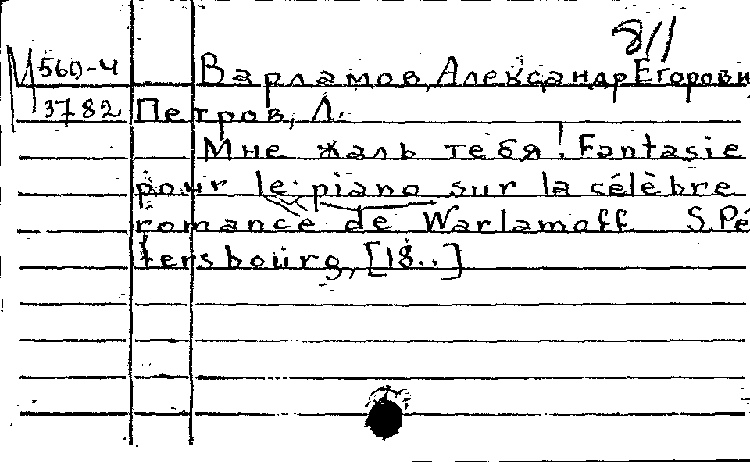 811
М560-4 Варламов, Александр Егорови
3782 Петров, Л.
Мне жаль тебя! Fantasie
pour le piano sur la célèbre
romance de Warlamoff S. Pé
tersbourg, [18..]